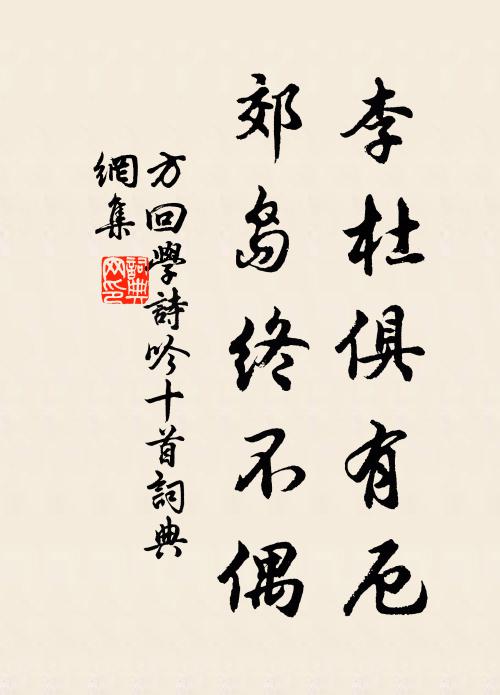 李杜俱有厄
郊島终不偶
方回學詩吟十首詞典
網集
詞典網印